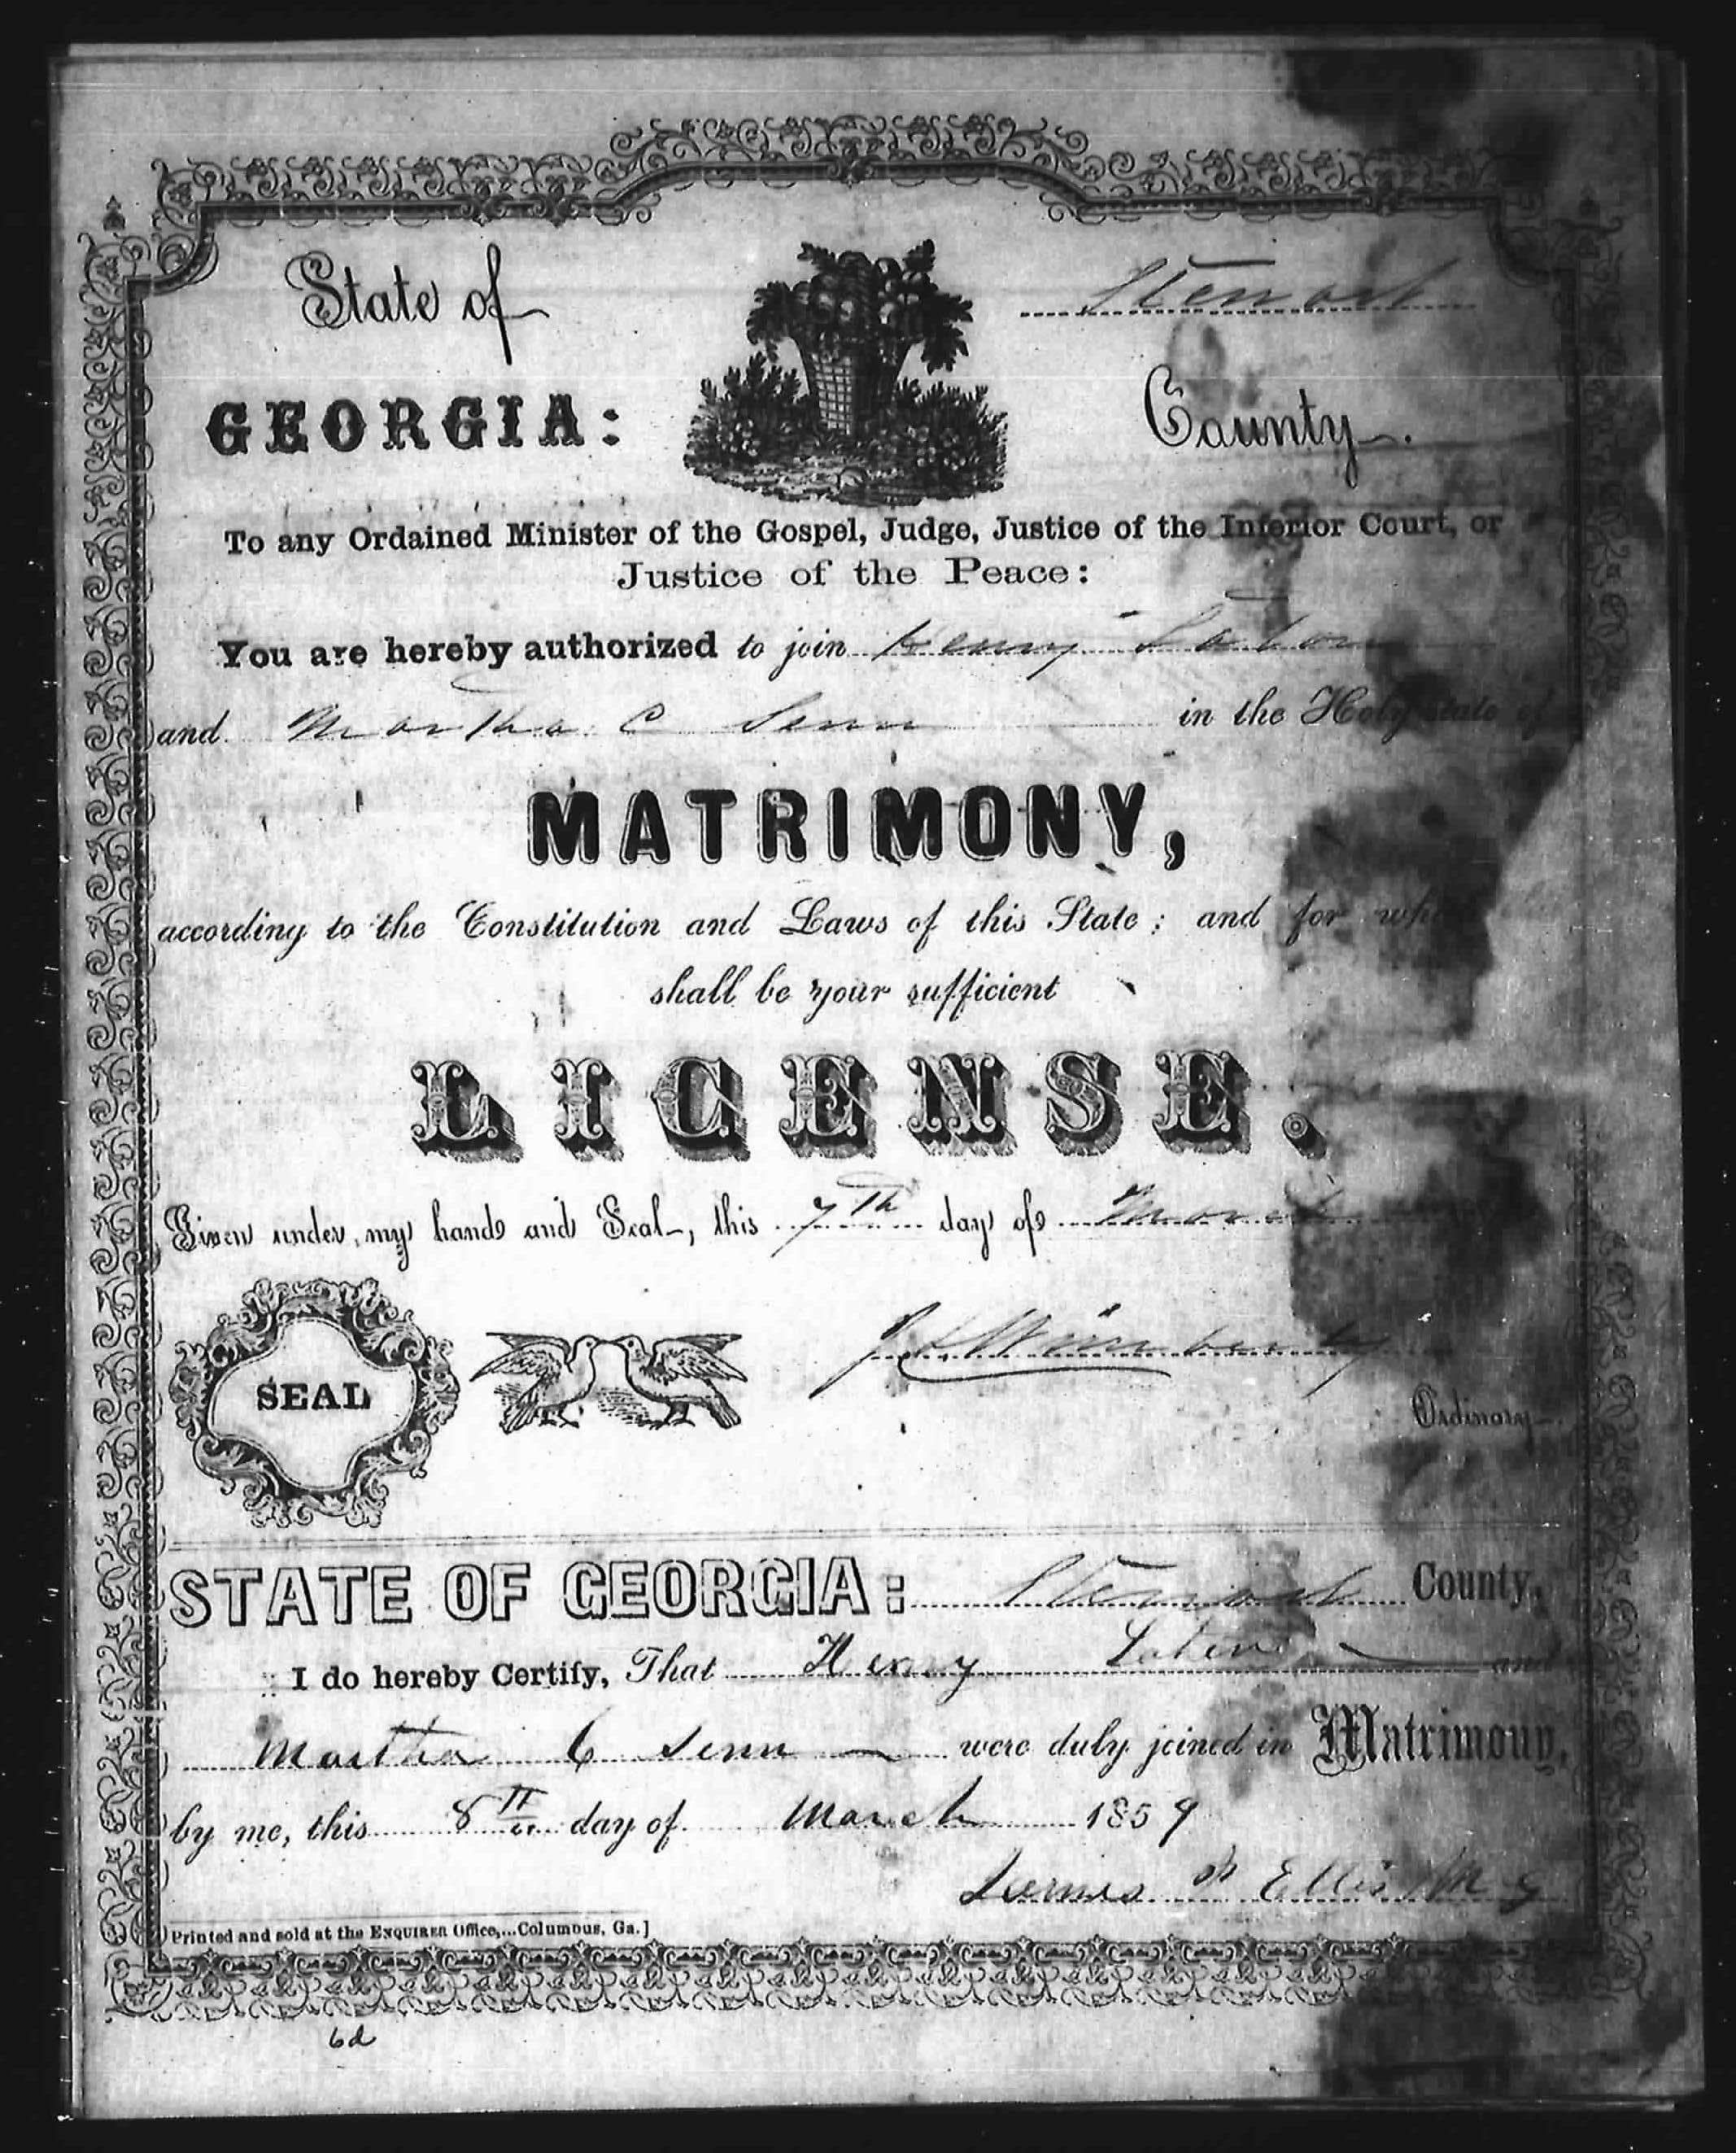 State of
Stewart
GEORGIA:
County.
To any Ordained Minister of the Gospel, Judge, Justice of the Inferior Court, or
Justice of the Peace:
You are hereby authorized to join Henry
and Martha C Senn in the Holy state of
MATRIMONY,
according to the Constitution and Laws of this State; and for
shall be your sufficient
LICENSE.
Given under my hand and Seal, this 7th day of March
J L Wimberly
SEAL
Ordinary
STATE OF GEORGIA: Stewart County,
I do hereby Certify, That Henry and
Martha C Senn were duly joined in Matrimony,
by me, this 8th day of March 1859
Ellis M G
Printed and sold at the ENQUIRER Office,...Columbus, Ga.]
6d